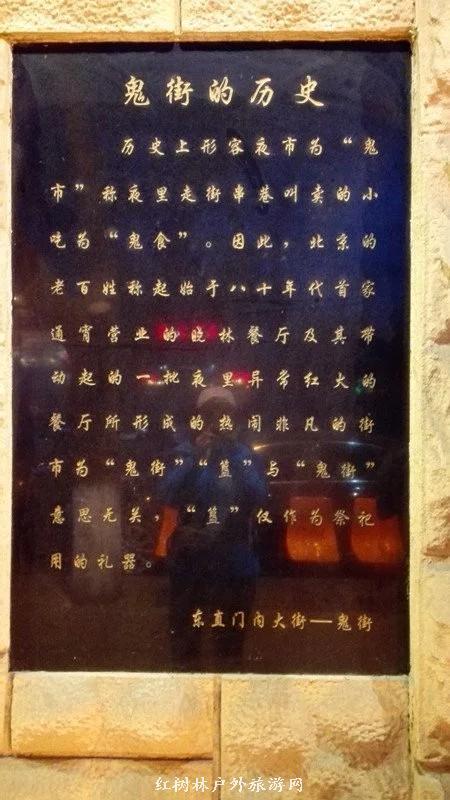 鬼街的历史
历史上形容夜市为“鬼
市”称夜里走街串巷叫卖的小
吃为“鬼食”。因此，北京的
老百姓称起始于八十年代首家
通宵营业的晓林餐厅及其带
动起的一批夜里异常红火的
餐厅所形成的热闹非凡的街
市为“鬼街”“簋”与“鬼街”
意思无关，“簋”仅作为祭祀
用的礼器。
东直门内大街——鬼街
红树林户外旅游网